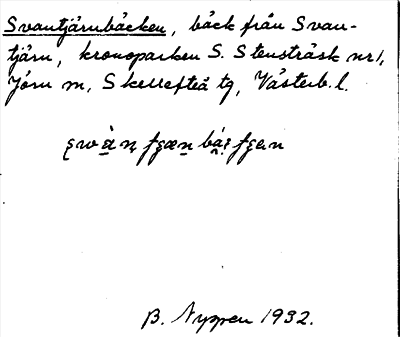 Svantjärnbäcken, bäck från Svan-
tjärn, kronoparken S. Stensträsk nr 1,
Jörn sn, Skellefteå tg, Västerb. l.
B. Nyppen 1932.